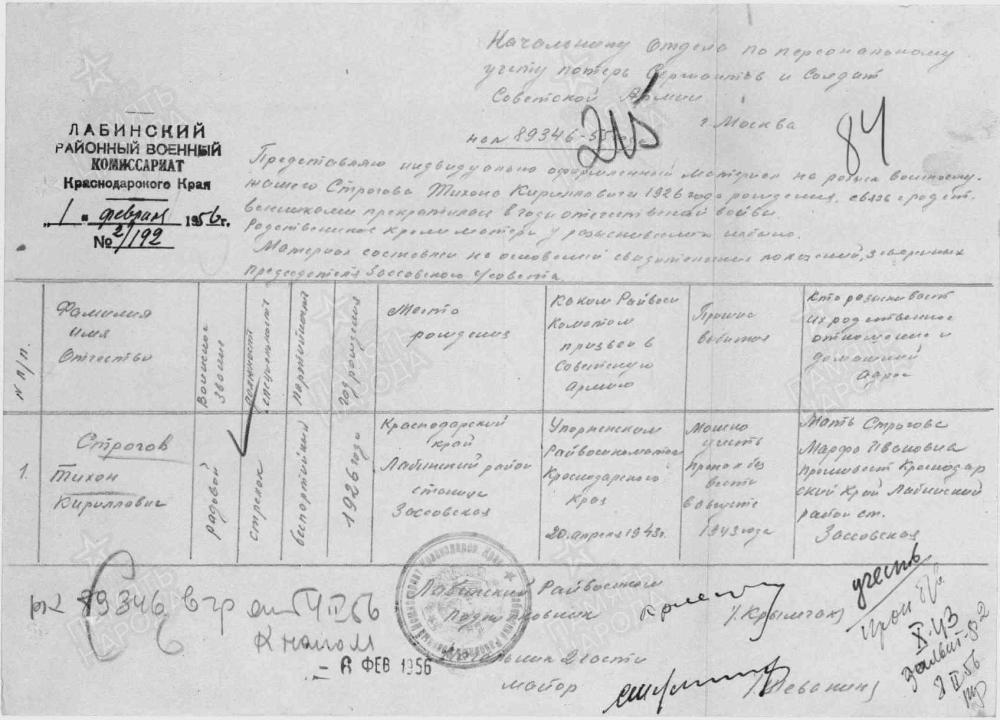 Начальнику Отдела по персональному
учету потерь Сержантов и Солдат
Советской Армии
г. Москва
на № 89346-55
215
84
ЛАБИНСКИЙ
РАЙОННЫЙ ВОЕННЫЙ
КОМИССАРИАТ
Краснодарского Края
"1" февраля 1956г.
№ 2/192
Представляю индивидуально оформленный материал на розыск военнослу-
жащего Строгова Тихона Кирилловича 1926 года рождения, связь с родст-
венниками прекратилась в годы отечественной войны.
Родственников кроме матери у разыскиваемого
Материал составлен на основании свидетельских показаний, заверенных
Председателя Зассовского с/совета.
№ п/п.
Фамилия
имя
Отчество
Воинское
звание
должность
специальность
партийность
год рождения
Место
рождения
Каким Райвоен
Коматом
призван в
Советскую
Армию
Кто разыскивает
их родственное
отношение и
домашний
адрес
1.
Строгов
Тихон
Кириллович
рядовой
стрелок
беспартийный
1926 года
Краснодарский
край
Лабинский район
станица
Зассовская
Упорненским
Райвоенкоматом
Краснодарского
Края
20 апреля 1943г.
Можно
учесть
пропал без
вести
в августе
1943 года
Мать Строгова
Марфа Ивановна
проживает Краснодар
ский Край Лабинский
район ст.
Зассовская
Лабинский Райвоенком
Подполковник
/Крымчак/
Начальник 2 части
майор
/Леванин/
89346
- 6 ФЕВ 1956
учесть
X-43
8 II 56
ПАМЯТЬ
НАРОДА